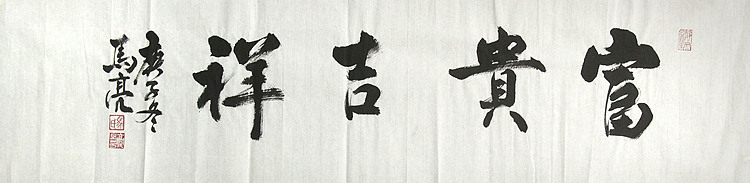 富貴吉祥
庚子冬
馬亮